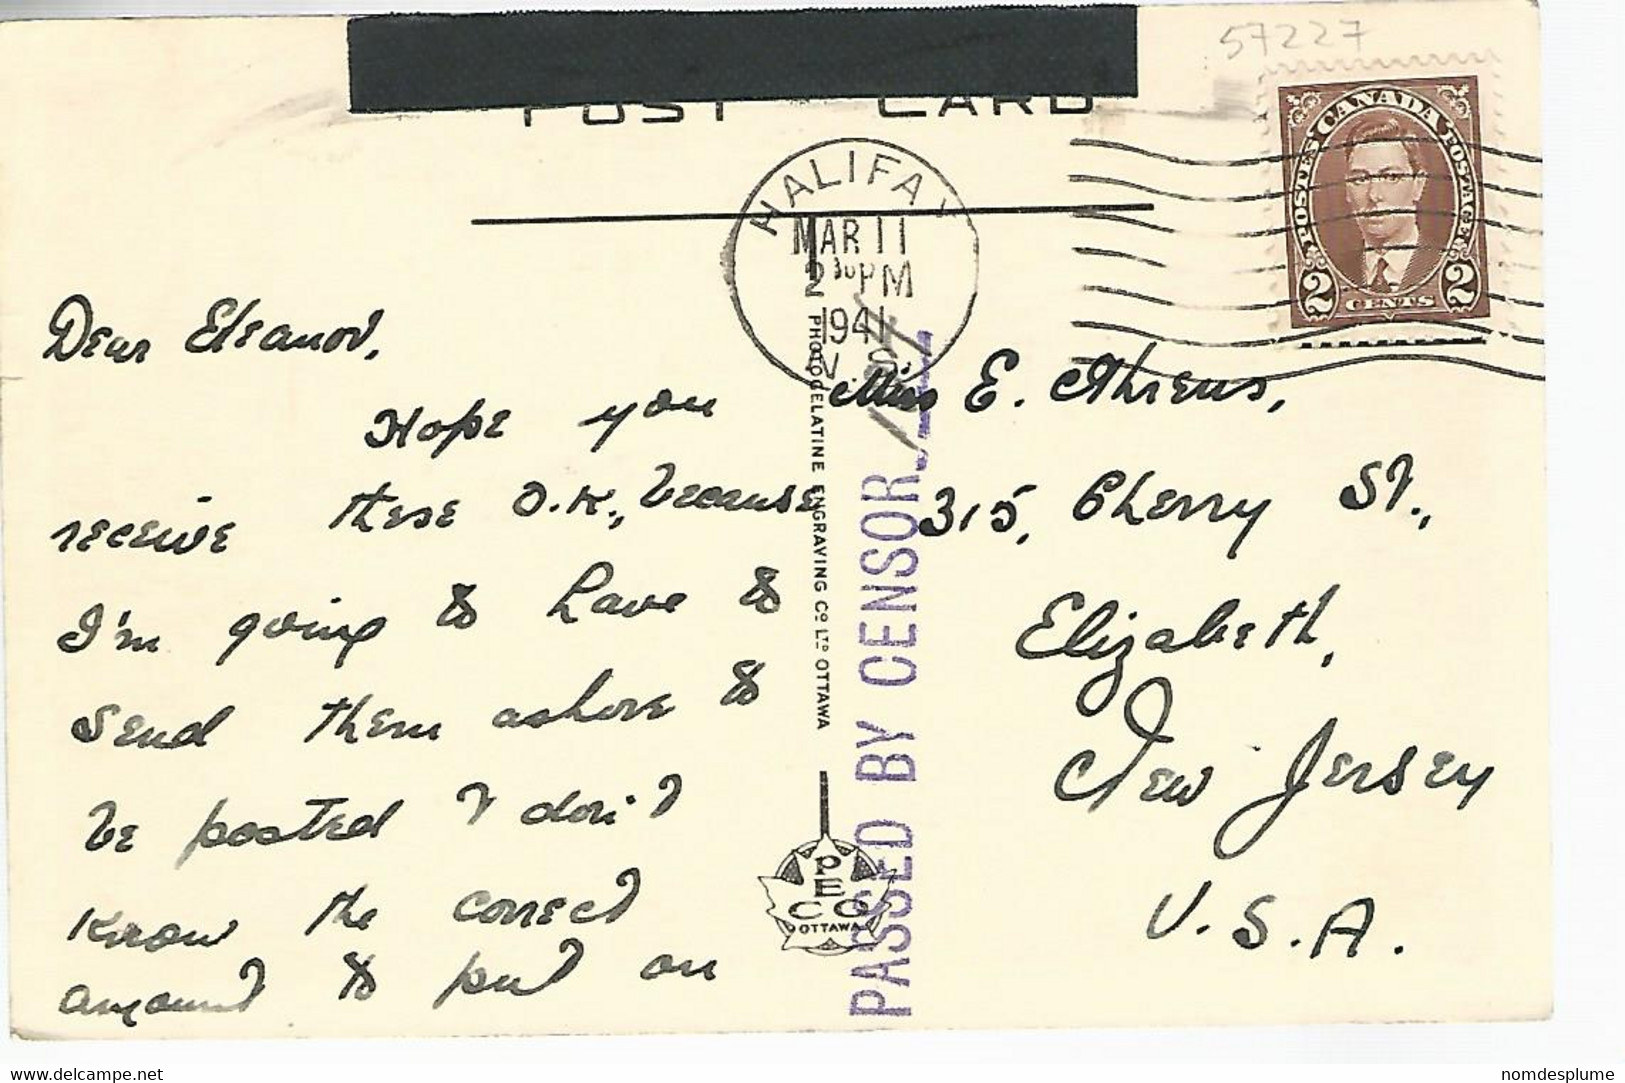 57227
POST CARD
CANADA
POSTES POSTAGE
2 CENTS 2
HALIFAX
MAR 11
2 30 PM
1941
N.S.
Dear Eleanor,
Hope you
receive these O.K., because
I'm going to have to
send them ashore to
be posted & I don't
know the correct
amount to put on
PHOTOGELATINE ENGRAVING CO LTD OTTAWA
PECO
OTTAWA
PASSED BY CENSOR
Miss E. Ahrens,
315, Cherry St.,
Elizabeth,
New Jersey
U.S.A.
delcampe.net
nomdesplume